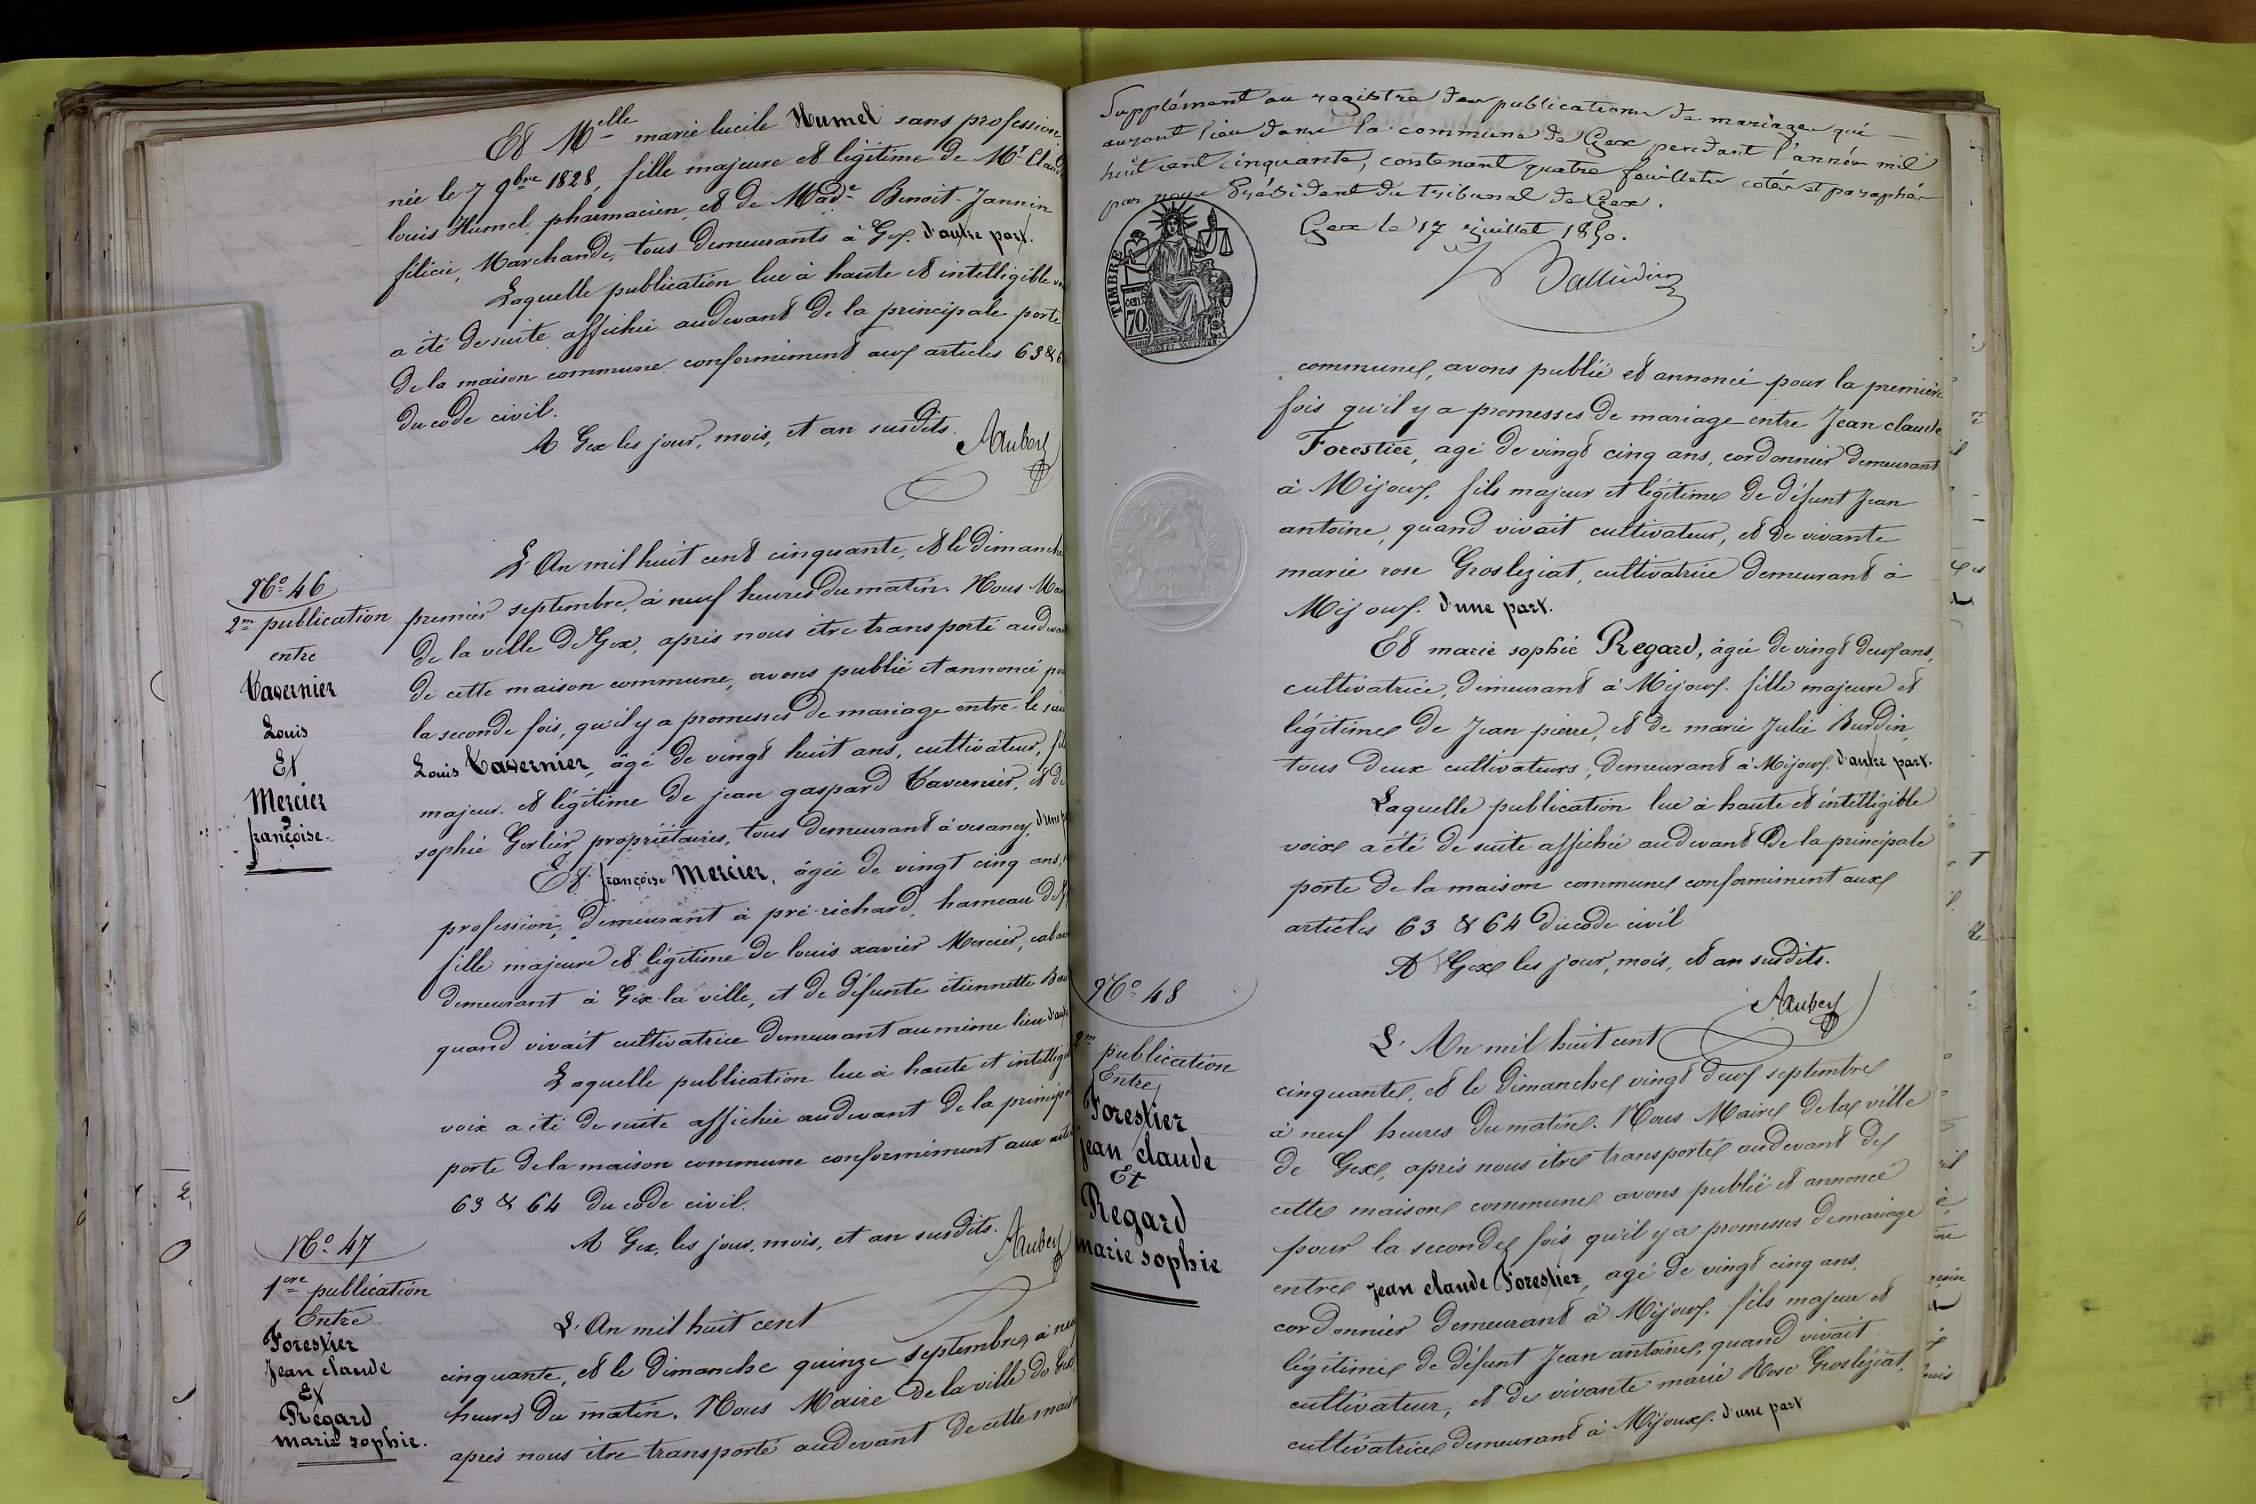 Et M^elle marie lucile Humel sans profession
née le 7 9^bre 1828, fille majeure et légitime de M^r
louis Humel, pharmacien, et de Mad^e Benoit-Jannin
félicie, Marchande, tous demeurants à Gex. d'autre part.
Laquelle publication lue à haute et intelligible
a été de suite affichée audevant de la principale porte
de la maison commune conformément aux articles 63 &
du code civil.
A Gex les jour, mois, et an susdits.
Aubery
N° 46
2^me publication
entre
Tavernier
Louis
Et
Mercier
françoise.
L'An mil huit cent cinquante, et le dimanche
premier septembre, à neuf heures du matin. Nous
de la ville de Gex, après nous être transporté
de cette maison commune, avons publié et annoncé
la seconde fois, qu'il y a promesses de mariage entre le
Louis Tavernier, âgé de vingt huit ans, cultivateur,
majeur et légitime de jean gaspard Tavernier, et de
sophie Gerlier propriétaires, tous demeurant à vesancy,
Et françoise Mercier, âgée de vingt cinq ans,
profession, demeurant à pré-richard, hameau de
fille majeure et légitime de louis xavier Mercier,
demeurant à Gex-la ville, et de défunte étiennette
quand vivait cultivatrice demeurant au même lieu
Laquelle publication lue à haute et
voix a été de suite affichée audevant de la
porte de la maison commune conformément aux
63 & 64 du code civil.
A Gex, les jour, mois, et an susdits.
Aubery
N° 47
1^ere publication
Entre
Forestier
Jean claude
Et
Regard
marie sophie.
L'An mil huit cent
cinquante, et le dimanche quinze septembre, à
heures du matin. Nous Maire de la ville de Gex,
après nous être transporté audevant de cette
Supplément au registre des publications de mariage qui
auront lieu dans la commune de Gex pendant l'année mil
huit cent cinquante, contenant quatre feuillets cotés et paraphés
par nous Président du tribunal de Gex.
Gex le 17 juillet 1850.
TIMBRE
cen.
70
communes, avons publié et annoncé pour la première
fois qu'il y a promesses de mariage entre Jean claude
Forestier, agé de vingt cinq ans, cordonnier demeurant
à Mijoux, fils majeur et légitime de défunt Jean
antoine, quand vivait cultivateur, et de vivante
marie rose Grosleziat, cultivatrice demeurant à
Mijoux. d'une part.
Et marie sophie Regard, âgée de vingt deux ans,
cultivatrice, demeurant à Mijoux. fille majeure et
légitime de Jean pierre, et de marie Julie Burdin,
tous deux cultivateurs, demeurant à Mijoux. d'autre part.
Laquelle publication lue à haute et intelligible
voix a été de suite affichée audevant de la principale
porte de la maison commune conformément aux
articles 63 & 64 du code civil
A Gex les jour, mois, et an susdits.
Aubery
N° 48
2^me publication
Entre
Forestier
jean claude
Et
Regard
marie sophie
L'An mil huit cent
cinquante, et le dimanche vingt deux septembre
à neuf heures du matin. Nous Maire de la ville
de Gex, après nous être transporté audevant de
cette maison commune avons publié et annoncé
pour la seconde fois qu'il y a promesses de mariage
entre jean claude Forestier, agé de vingt cinq ans,
cordonnier demeurant à Mijoux. fils majeur et
légitime de défunt Jean antoine, quand vivait
cultivateur, et de vivante marie Rose Grosleziat,
cultivatrice demeurant à Mijoux. d'une part